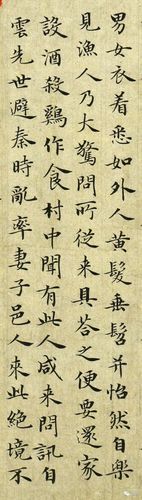 男女衣着悉如外人黄髮垂髫并怡然自樂
見漁人乃大驚問所從来具荅之便要還家
設酒殺鷄作食村中聞有此人咸来問訊自
雲先世避秦時亂率妻子邑人來此絶境不